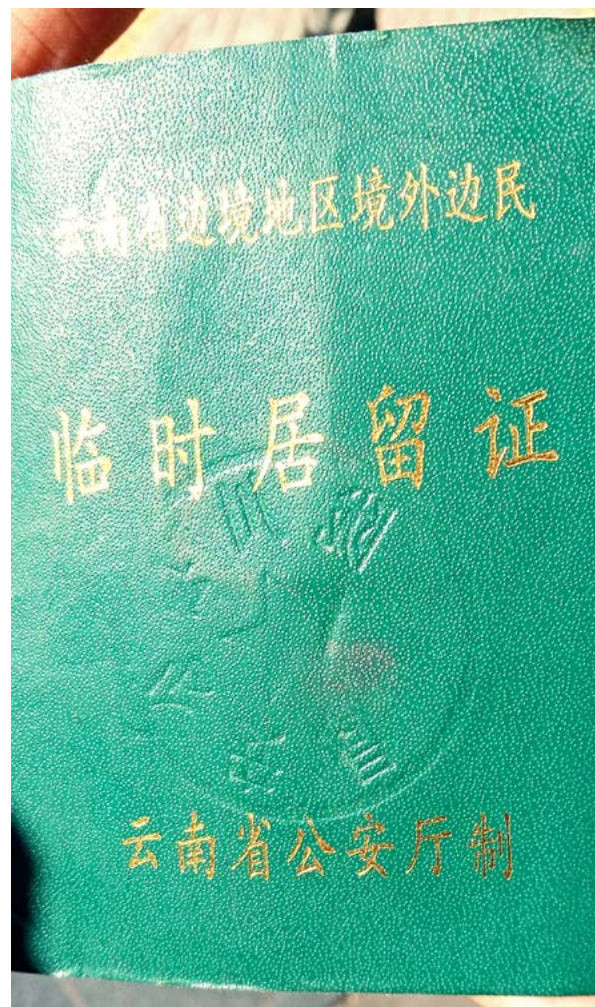 云南省边境地区境外边民
临时居留证
云南省公安厅制